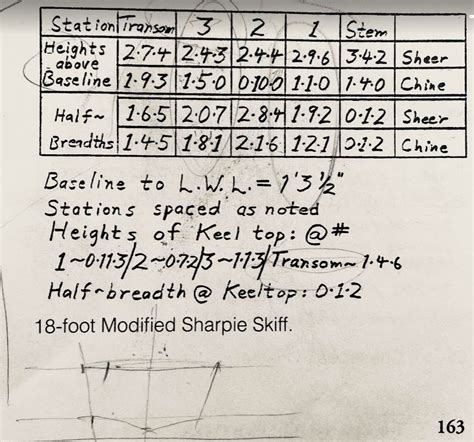 Station Transom 3 2 1 Stem
Heights above Baseline 2·7·4 2·4·3 2·4·4 2·9·6 3·4·2 Sheer
1·9·3 1·5·0 0·10·0 1·1·0 1·4·0 Chine
Half~ Breadths 1·6·5 2·0·7 2·8·4 1·9·2 0·1·2 Sheer
1·4·5 1·8·1 2·1·6 1·2·1 0·1·2 Chine
Baseline to L.W.L. = 1'3½"
Stations spaced as noted
Heights of Keel top: @#
1~0·11·3/2~0·7·2/3~1·1·3/Transom~1·4·6
Half~breadth @ Keeltop: 0·1·2
18-foot Modified Sharpie Skiff.
163